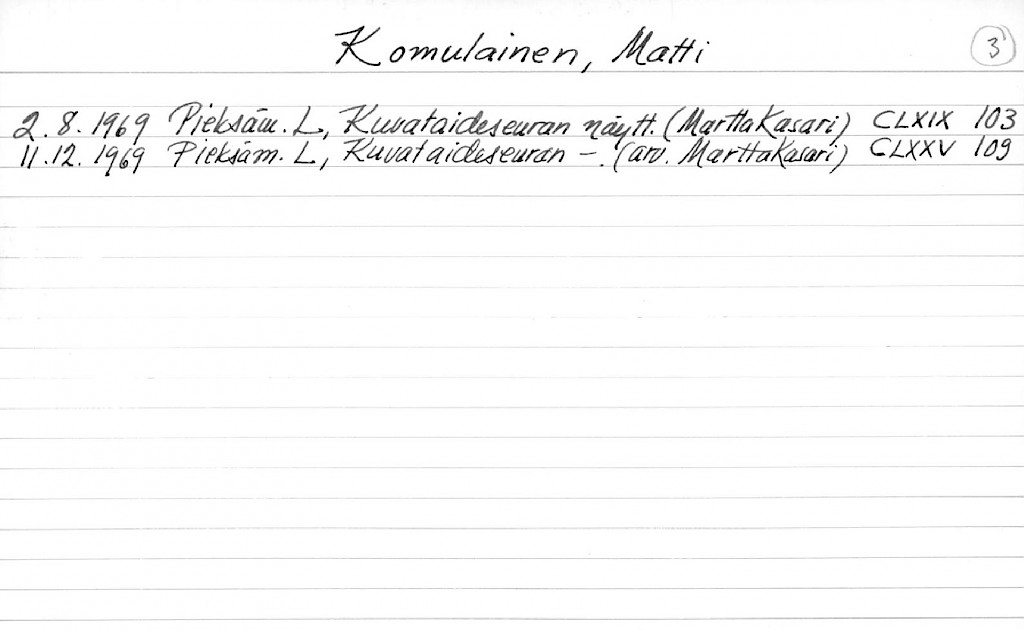 Komulainen, Matti 3
2.8.1969 Pieksäm. L, Kuvataideseuran näytt. (Martta Kasari) CLXIX 103
11.12.1969 Pieksäm. L, Kuvataideseuran –. (arv. Martta Kasari) CLXXV 109